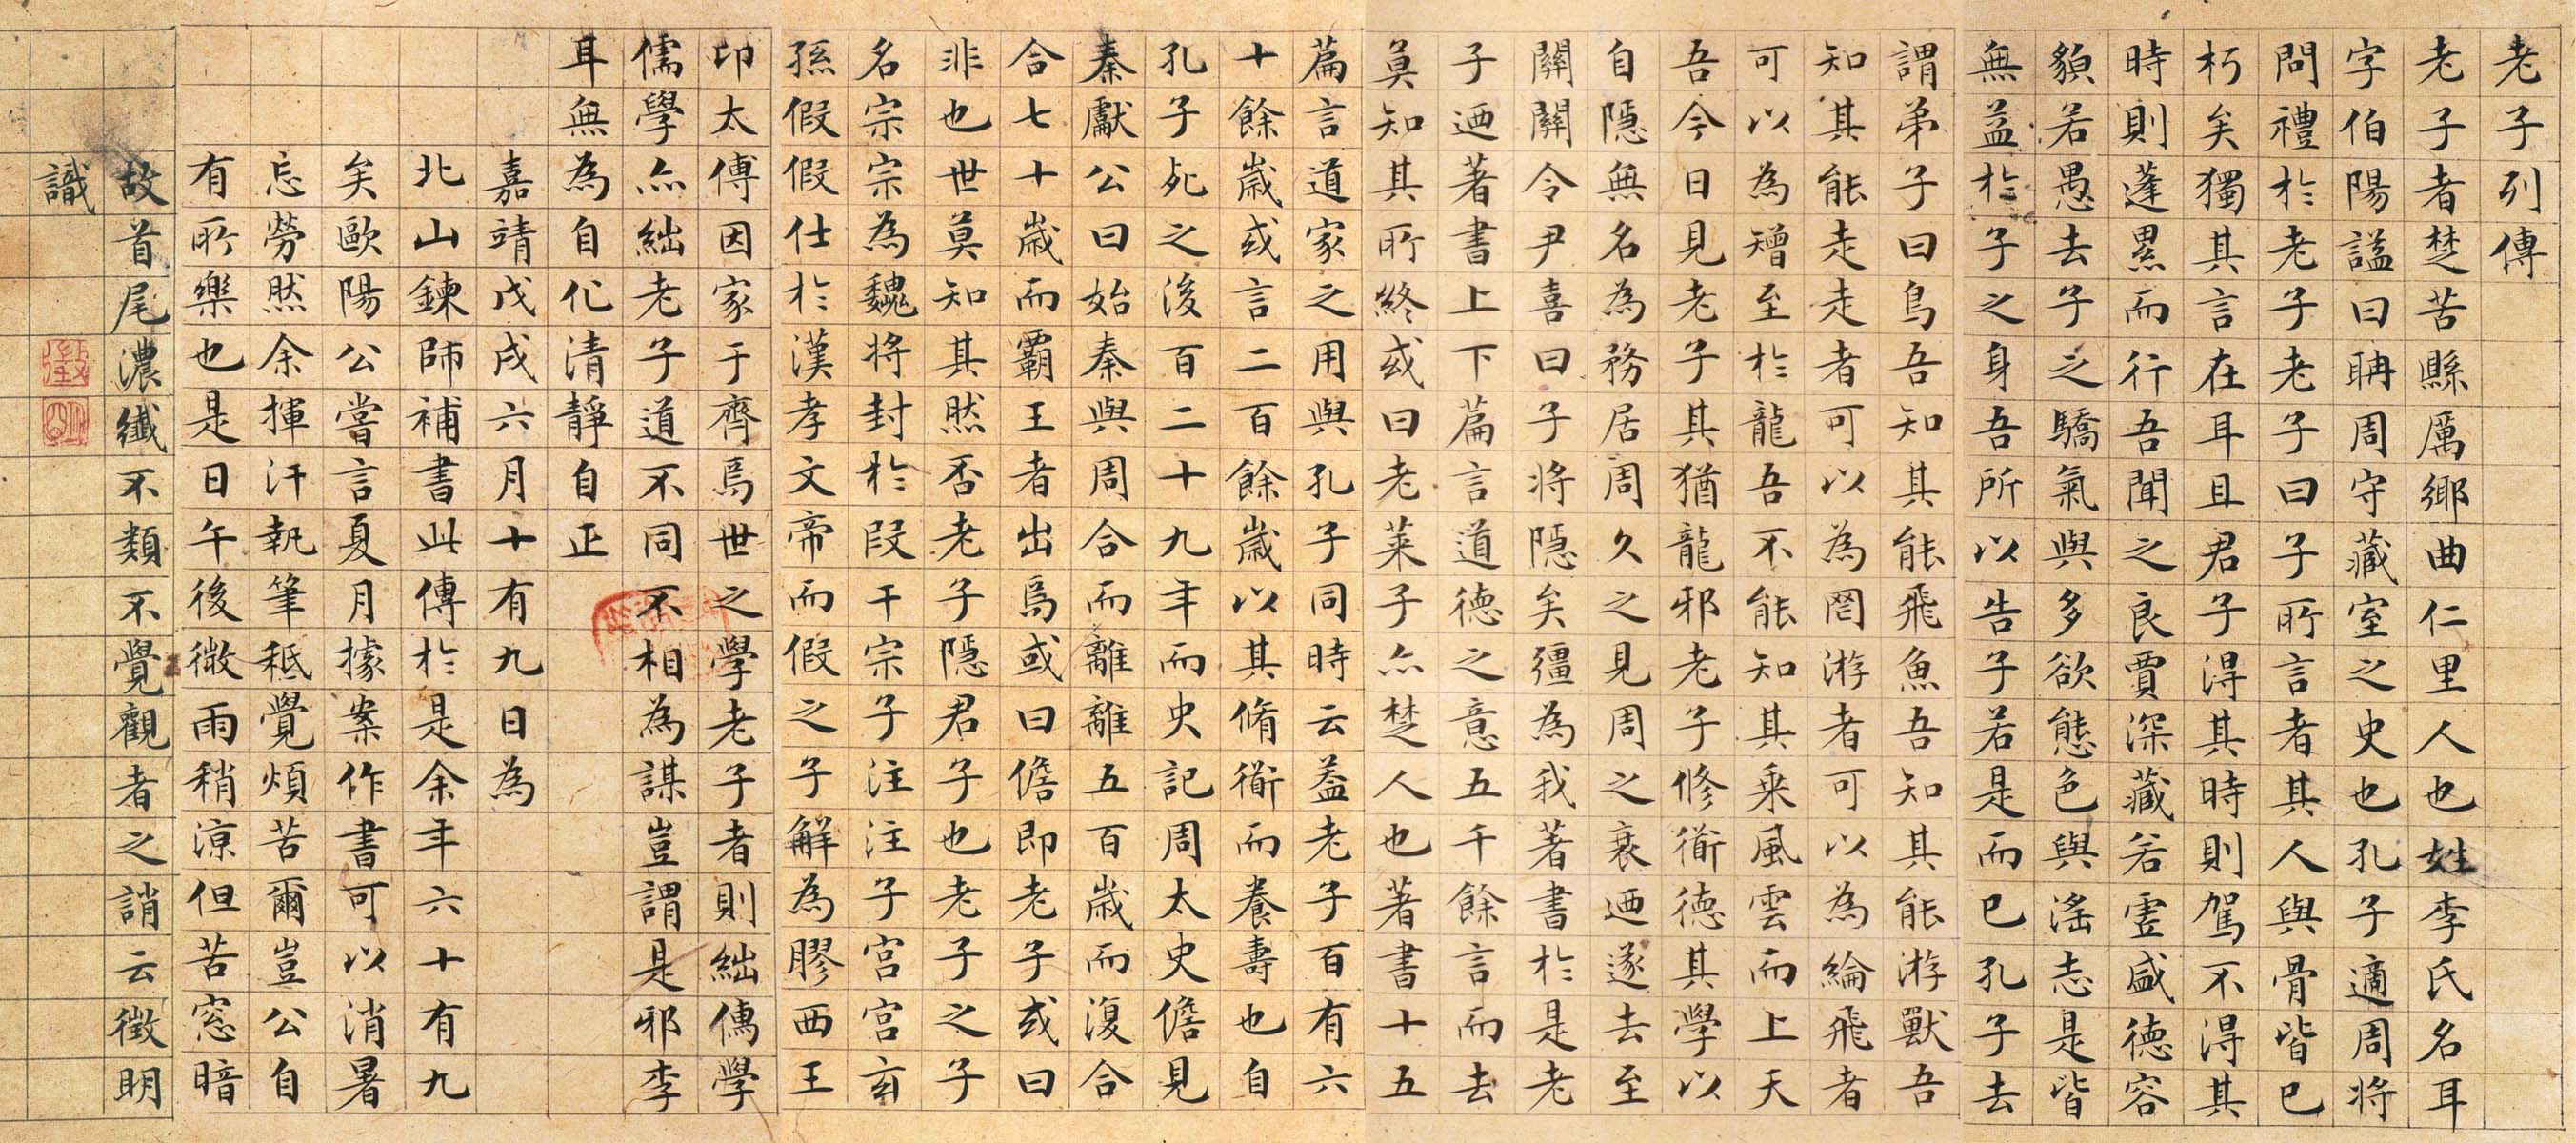 老子列傳
老子者楚苦縣厲鄉曲仁里人也姓李氏名耳
字伯陽謚曰聃周守藏室之史也孔子適周將
問禮於老子老子曰子所言者其人與骨皆已
朽矣獨其言在耳且君子得其時則駕不得其
時則蓬累而行吾聞之良賈深藏若虛盛德容
貌若愚去子之驕氣與多欲態色與淫志是皆
無益於子之身吾所以告子若是而已孔子去
謂弟子曰鳥吾知其能飛魚吾知其能游獸吾
知其能走走者可以為罔游者可以為綸飛者
可以為矰至於龍吾不能知其乘風雲而上天
吾今日見老子其猶龍邪老子修衜德其學以
自隱無名為務居周久之見周之衰迺遂去至
關關令尹喜曰子將隱矣彊為我著書於是老
子迺著書上下篇言道德之意五千餘言而去
莫知其所終或曰老萊子亦楚人也著書十五
篇言道家之用與孔子同時云蓋老子百有六
十餘歲或言二百餘歲以其脩衜而養壽也自
孔子死之後百二十九年而史記周太史儋見
秦獻公曰始秦與周合而離離五百歲而復合
合七十歲而霸王者出焉或曰儋即老子或曰
非也世莫知其然否老子隱君子也老子之子
名宗宗為魏將封於段干宗子注注子宮宮玄
孫假假仕於漢孝文帝而假之子解為膠西王
卬太傅因家于齊焉世之學老子者則絀儒學
儒學亦絀老子道不同不相為謀豈謂是邪李
耳無為自化清靜自正
嘉靖戊戌六月十有九日為
北山鍊師補書此傳於是余年六十有九
矣歐陽公嘗言夏月據案作書可以消暑
忘勞然余揮汗執筆秪覺煩苦爾豈公自
有所樂也是日午後微雨稍涼但苦窓暗
故首尾濃纖不類不覺觀者之誚云徵明
識
徵
明